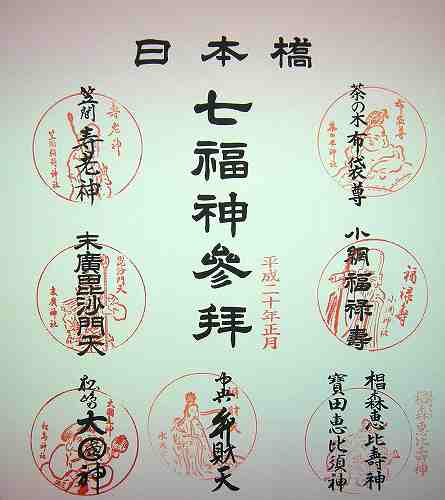 日本橋
七福神参拜
平成二十年正月
茶の木 布袋尊
布袋尊
茶ノ木神社
小網 福禄壽
福禄寿
小網神社
椙森 恵比壽神
寶田 恵比須神
椙森恵比寿神
弁財天
笠間 寿老神
寿老神
笠間稲荷神社
末廣 毘沙門天
毘沙門天
末廣神社
松島 大國神
松島神社